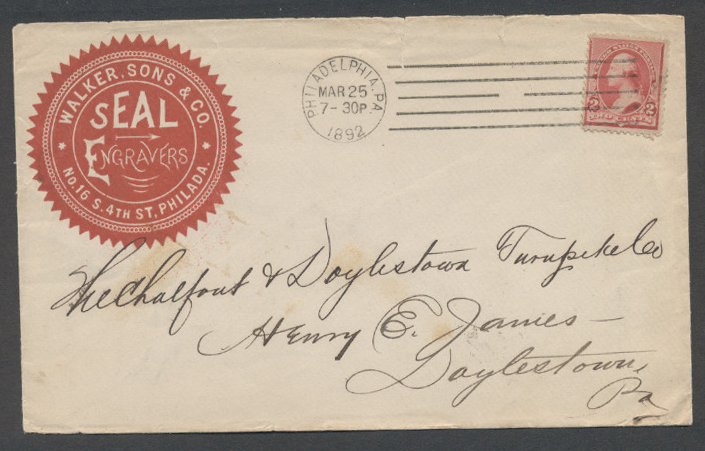 WALKER, SONS & CO.
SEAL
ENGRAVERS
No. 16 S. 4TH ST, PHILADA.
PHILADELPHIA, PA.
MAR 25
7-30P.
1892
2 2
The Chalfont & Doylestown Turnpike Co
Henry E. James—
Doylestown,
Pa